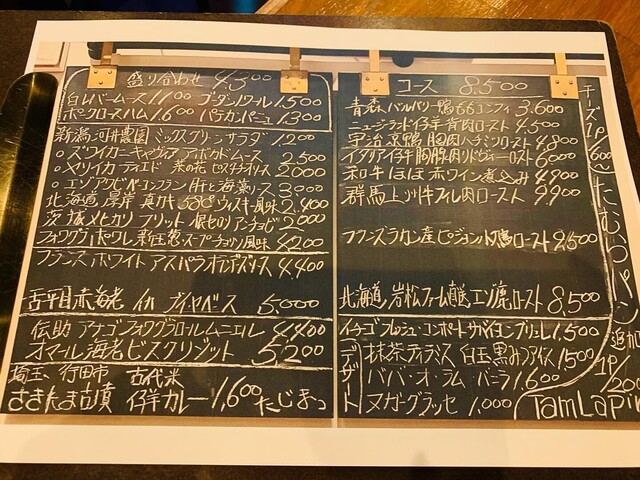 盛り合わせ 4.300
白レバームース 1100 ゴーダノワール 1.500
ポークロースハム 1600 パテカンパーニュ 1.300
新潟 河井農園 ミックスグリーンサラダ 1.200
○ズワイガニキャヴィア アボカドムース 2500
○ヤリイカ ティエド 菜の花 ピスタチオソース 2000
○エゾアワビ コンフラン 肝と海藻ソース 3000
北海道 厚岸 真カキ ウィスキー風味 2.400
茨城 メヒカリ フリット 根セロリ アンチョビ 2000
フォワグラ ポワレ スープ 風味 4200
フランス ホワイト アスパラ オランデーズソース 4.400
舌平目 赤海老 in ブイヤベース 5.000
伝助 アナゴフォワグラロール ムニエル 4400
オマール海老 ビスクリゾット 5,200
埼玉、行田市 古代米
さきたま古墳 仔羊カレー 1,600 たじまっ
コース 8,500
青森 バルバリー鴨 モモコンフィ 3.600
ニュージーランド 仔羊 背肉ロースト 4.500
宇治 京鴨 胸肉 ハラミ ロースト 4.800
イタリア 仔牛 胸腺肉 リドヴォーロースト 6000
和牛 ほほ 赤ワイン煮込み 4.900
群馬 上州牛 フィレ肉ロースト 9.900
フランス ラカン産 ピジョン 小鳩ロースト 8,500
北海道 岩松ファーム直送 エゾ鹿ロースト 8,500
イチゴ フレッシュ・コンポート サバイヨンブリュレ 1,500
デザート
抹茶ティラミス 白玉 黒みつアイス 1500
ババ・オ・ラム・バニラ 1,600
ヌガーグラッセ 1,000
チーズ 1P 600
たむらパン 追加 1P 200
Tam Lapin